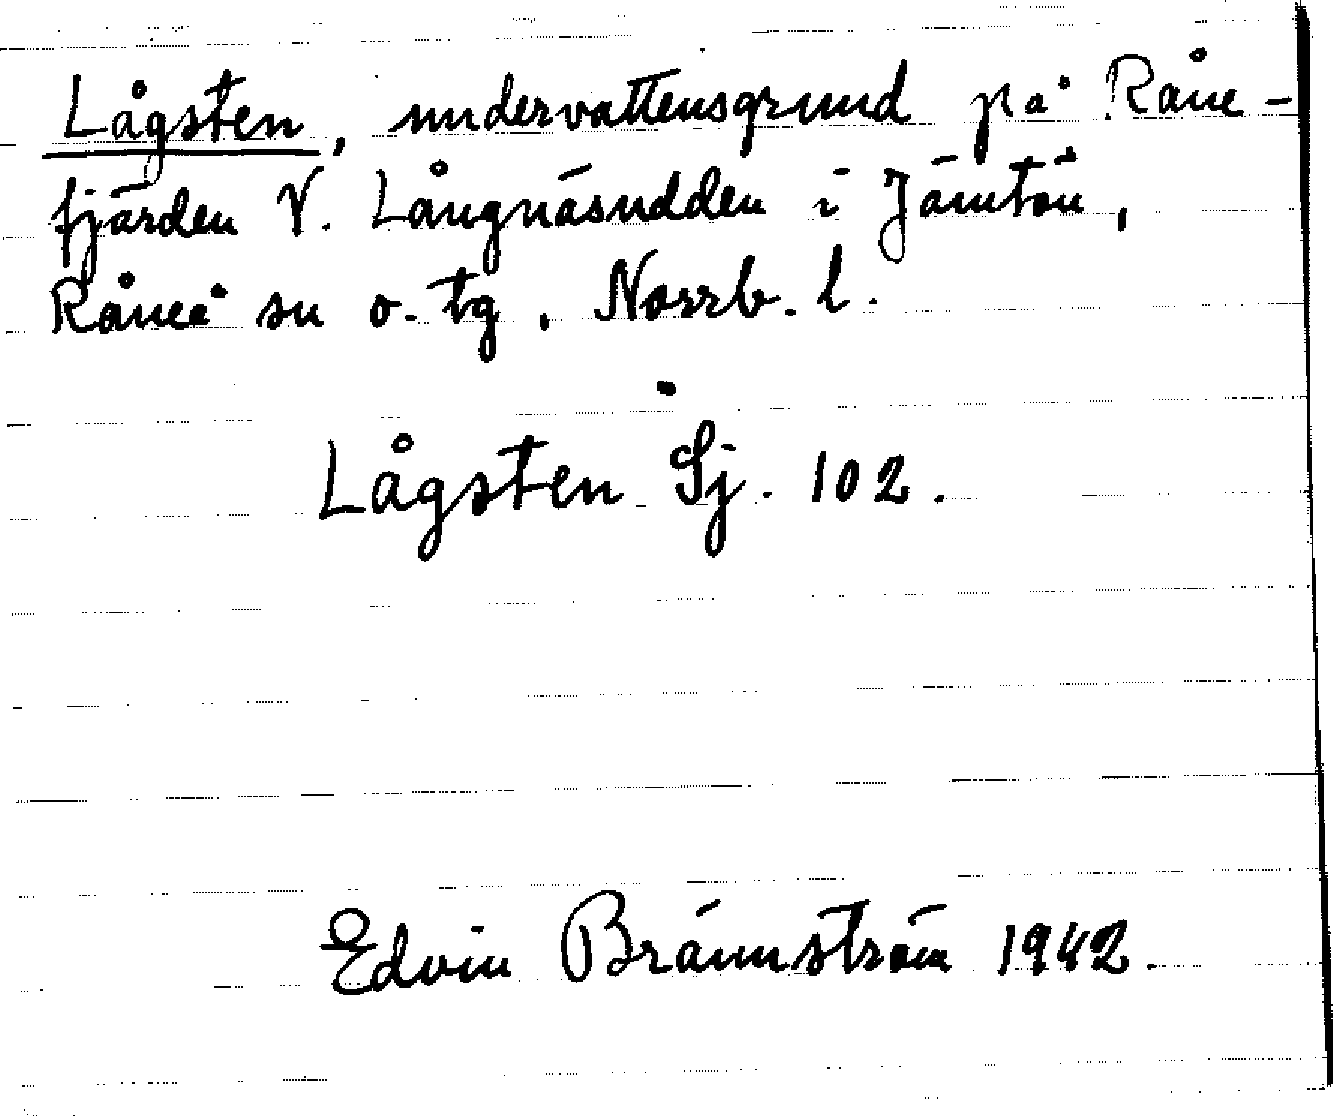 Lågsten, undervattensgrund på Råne-
fjärden V. Långnäsudden i Jämtön,
Råneå sn o. tg, Norrb. l.
Lågsten Sj. 102.
Edvin Brännström 1942.